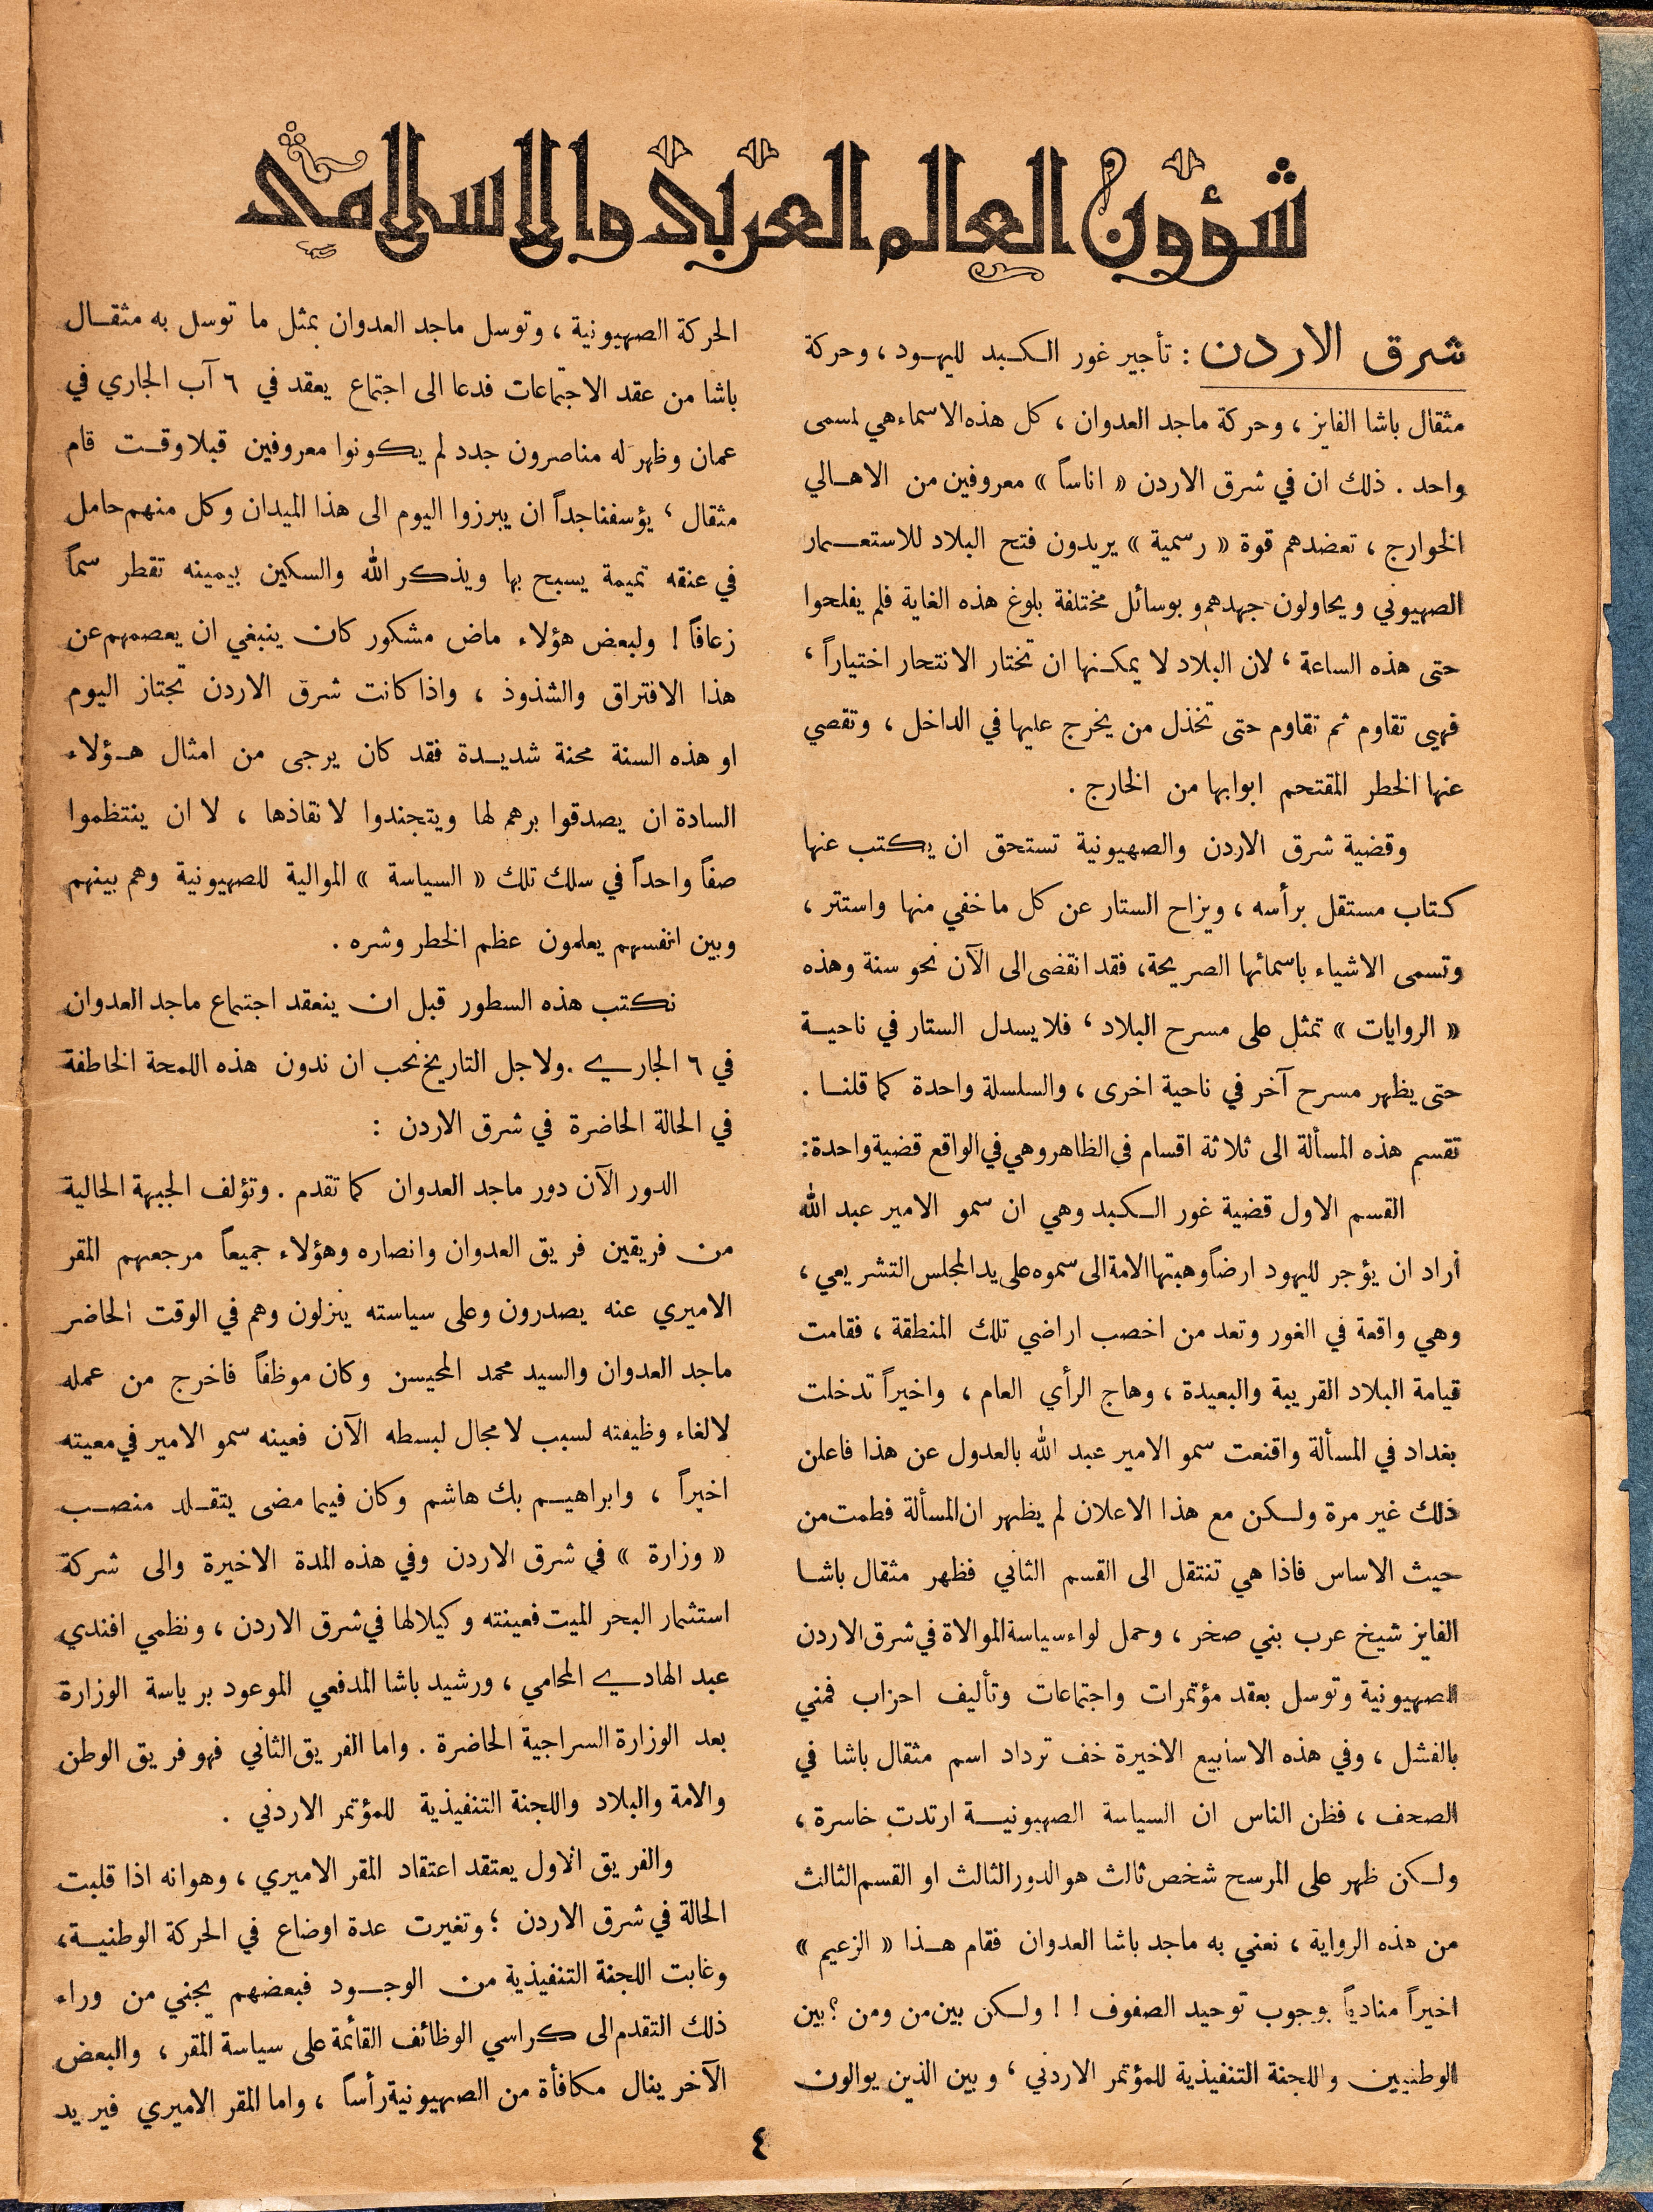 شؤون العالم العربي والاسلامي
شرق الاردن : تأجير غور الكبد لليهود ، وحركة
مثقال باشا الفايز ، وحركة ماجد العدوان ، كل هذه الاسماء هي لمسمى
واحد . ذلك ان في شرق الاردن « اناساً » معروفين من الاهالي
الخوارج ، تعضدهم قوة « رسمية » يريدون فتح البلاد للاستعمار
الصهيوني ويحاولون جهدهم وبوسائل مختلفة بلوغ هذه الغاية فلم يفلحوا
حتى هذه الساعة ، لان البلاد لا يمكنها ان تختار الانتحار اختياراً ،
فهي تقاوم ثم تقاوم حتى تخذل من يخرج عليها في الداخل ، وتقصي
عنها الخطر المقتحم ابوابها من الخارج .
وقضية شرق الاردن والصهيونية تستحق ان يكتب عنها
كتاب مستقل برأسه ، ويزاح الستار عن كل ما خفي منها واستتر ،
وتسمى الاشياء باسمائها الصريحة، فقد انقضى الى الآن نحو سنة وهذه
« الروايات » تمثل على مسرح البلاد ، فلا يسدل الستار في ناحية
حتى يظهر مسرح آخر في ناحية اخرى ، والسلسلة واحدة كما قلنا .
تقسم هذه المسألة الى ثلاثة اقسام في الظاهر وهي في الواقع قضية واحدة:
القسم الاول قضية غور الكبد وهي ان سمو الامير عبد الله
أراد ان يؤجر لليهود ارضاً وهبتها الامة الى سموه على يد المجلس التشريعي ،
وهي واقعة في الغور وتعد من اخصب اراضي تلك المنطقة ، فقامت
قيامة البلاد القريبة والبعيدة ، وهاج الرأي العام ، واخيراً تدخلت
بغداد في المسألة واقنعت سمو الامير عبد الله بالعدول عن هذا فاعلن
ذلك غير مرة ولكن مع هذا الاعلان لم يظهر ان المسألة فطمت من
حيث الاساس فاذا هي تنتقل الى القسم الثاني فظهر مثقال باشا
الفايز شيخ عرب بني صخر ، وحمل لواء سياسة الموالاة في شرق الاردن
الصهيونية وتوسل بعقد مؤتمرات واجتماعات وتأليف احزاب فمني
بالفشل ، وفي هذه الاسابيع الاخيرة خف ترداد اسم مثقال باشا في
الصحف ، فظن الناس ان السياسة الصهيونية ارتدت خاسرة ،
ولكن ظهر على المرسح شخص ثالث هو الدور الثالث او القسم الثالث
من هذه الرواية ، نعني به ماجد باشا العدوان فقام هذا « الزعيم »
اخيراً منادياً بوجوب توحيد الصفوف ! ! ولكن بين من ومن ؟ بين
الوطنيين واللجنة التنفيذية للمؤتمر الاردني ، وبين الذين يوالون
الحركة الصهيونية ، وتوسل ماجد العدوان بمثل ما توسل به مثقال
باشا من عقد الاجتماعات فدعا الى اجتماع يعقد في ٦ آب الجاري في
عمان وظهر له مناصرون جدد لم يكونوا معروفين قبلا وقت قام
مثقال ، يؤسفنا جداً ان يبرزوا اليوم الى هذا الميدان وكل منهم حامل
في عنقه تميمة يسبح بها ويذكر الله والسكين بيمينه تقطر سماً
زعافاً ! ولبعض هؤلاء ماض مشكور كان ينبغي ان يعصمهم عن
هذا الافتراق والشذوذ ، واذا كانت شرق الاردن تجتاز اليوم
او هذه السنة محنة شديدة فقد كان يرجى من امثال هؤلاء
السادة ان يصدقوا برهم لها ويتجندوا لانقاذها ، لا ان ينتظموا
صفاً واحداً في سلك تلك « السياسة » الموالية للصهيونية وهم بينهم
وبين انفسهم يعلمون عظم الخطر وشره .
نكتب هذه السطور قبل ان ينعقد اجتماع ماجد العدوان
في ٦ الجاري . ولاجل التاريخ نحب ان ندون هذه اللمحة الخاطفة
في الحالة الحاضرة في شرق الاردن :
الدور الآن دور ماجد العدوان كما تقدم . وتؤلف الجبهة الحالية
من فريقين فريق العدوان وانصاره وهؤلاء جميعاً مرجعهم المقر
الاميري عنه يصدرون وعلى سياسته ينزلون وهم في الوقت الحاضر
ماجد العدوان والسيد محمد المحيسن وكان موظفاً فاخرج من عمله
لالغاء وظيفته لسبب لا مجال لبسطه الآن فعينه سمو الامير في معيته
اخيراً ، وابراهيم بك هاشم وكان فيما مضى يتقلد منصب
« وزارة » في شرق الاردن وفي هذه المدة الاخيرة والى شركة
استثمار البحر الميت فعينته وكيلا لها في شرق الاردن ، ونظمي افندي
عبد الهادي المحامي ، ورشيد باشا المدفعي الموعود برياسة الوزارة
بعد الوزارة السراجية الحاضرة . واما الفريق الثاني فهو فريق الوطن
والامة والبلاد واللجنة التنفيذية للمؤتمر الاردني .
والفريق الاول يعتقد اعتقاد المقر الاميري ، وهو انه اذا قلبت
الحالة في شرق الاردن ؛ وتغيرت عدة اوضاع في الحركة الوطنية،
وغابت اللجنة التنفيذية من الوجود فبعضهم يجني من وراء
ذلك التقدم الى كراسي الوظائف القائمة على سياسة المقر ، والبعض
الآخر ينال مكافأة من الصهيونية رأساً ، واما المقر الاميري فيريد
٤